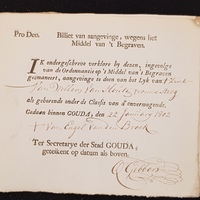 Pro Deo. Billiet van aangevinge, wegens het
Middel van 't Begraven.
IK ondergeschreve verklare by dezen, ingevolge
van de Ordonnantie op 't Middel van 't Begraven
geëmaneert, aangevinge te doen van het Lyk van
Van Willem van
als gehorende onder de Classis van d'onvermogende.
Gedaan binnen GOUDA, den 22 January 1802
+ Van
Ter Secretarye der Stad GOUDA,
geteikent op datum als boven.